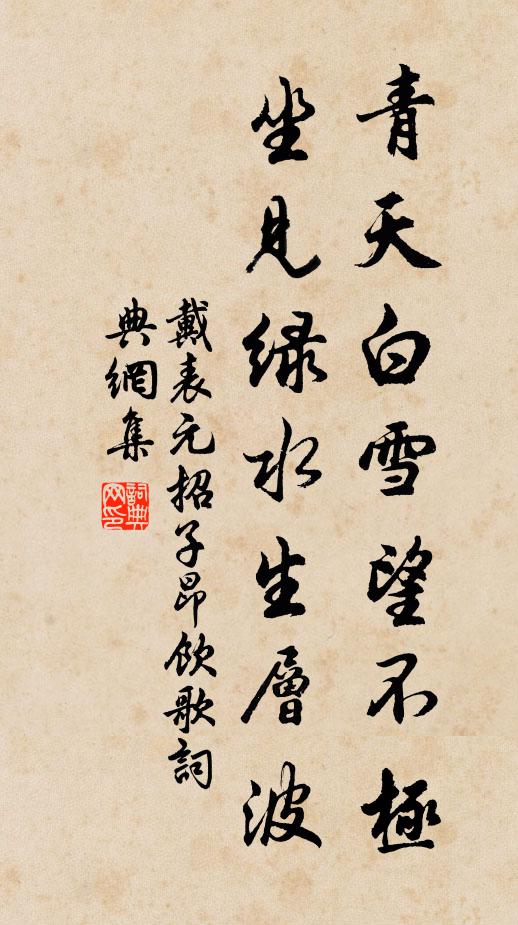 青天白雪望不極
坐見緑水生層波
戴表元招子昂飲歌詞
典網集
詞典网印